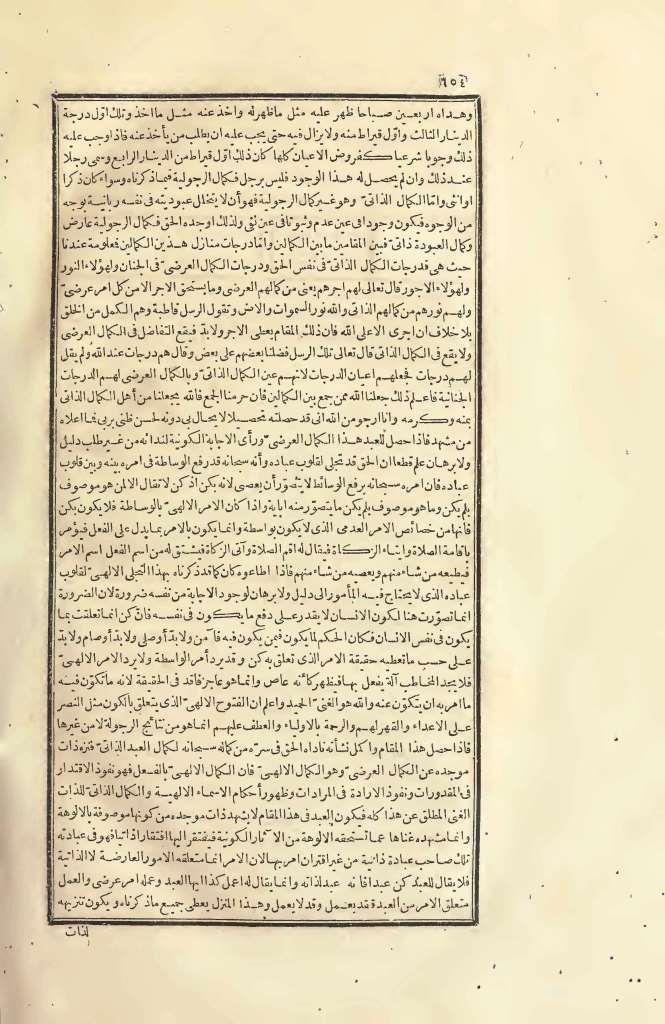 ٦٥٤
وهداه اربعين صباحا ظهر عليه مثل ماظهر له واخذ عنه مثل مااخذ وتلك اول درجة
الدينار الثالث واول قيراط منه ولايزال فيه حتى يجب عليه ان يطلب من يأخذ عنه فاذا وجب عليه
ذلك وجوبا شرعيا كفروض الاعيان كلها كان ذلك اول قيراط من الدينار الرابع وسمى رجلا
عند ذلك وان لم يحصل له هذا الوجود فليس برجل فكمال الرجولية فيما ذكرناه وسواء كان ذكرا
او انثى واما الكمال الذاتى وهو غير كمال الرجولية فهو أن لا يتخلل عبوديته فى نفسه ربانية بوجه
من الوجوه فيكون وجودا فى عين عدم وثبوتا فى عين نفى ولذلك اوجده الحق فكمال الرجولية عارض
وكمال العبودة ذاتى فبين المقامين مابين الكمالين واما درجات منازل هذين الكمالين فمعلومة عندنا
حيث هى فدرجات الكمال الذاتى فى نفس الحق ودرجات الكمال العرضى فى الجنان ولهؤلاء النور
ولهؤلاء الاجور قال تعالى لهم اجرهم يعنى من كمالهم العرضى وما يستحق الاجر الا من كل امر عرضى
ولهم نورهم من كمالهم الذاتى والله نور السموات والارض وتقول الرسل قاطبة وهم الكمل من الخلق
بلا خلاف ان اجرى الا على الله فان ذلك المقام يعطى الاجر ولابد فيقع التفاضل فى الكمال العرضى
ولا يقع فى الكمال الذاتى قال تعالى تلك الرسل فضلنا بعضهم على بعض وقال هم درجات عند الله ولم يقل
لهم درجات فجعلهم اعيان الدرجات لانهم عين الكمال الذاتى وبالكمال العرضى لهم الدرجات
الجنانية فاعلم ذلك جعلنا الله ممن جمع بين الكمالين فان حرمنا الجمع فالله يجعلنا من أهل الكمال الذاتى
بمنه وكرمه وانا ارجو من الله انى قد حصلته تحصيلا لا يحال بى دونه لحسن ظنى بربى فما اعلاه
من مشهد فاذا حصل للعبد هذا الكمال العرضى ورأى الاجابة الكونية لندائه من غير طلب دليل
ولا برهان علم قطعا ان الحق قد تجلى لقلوب عباده وأنه سبحانه قد رفع الوساطة فى امره بينه وبين قلوب
عباده فان امره سبحانه برفع الوسائط لا يتصور أن يعصى لانه بكن اذ كن لا تقال الا لمن هو موصوف
بلم يكن وماهو موصوف بلم يكن مايتصور منه اباية واذا كان الامر الالهى بالوساطة فلا يكون بكن
فانها من خصائص الامر العدمى الذى لا يكون بواسطة وانما يكون بالامر بما يدل على الفعل فيؤمر
باقامة الصلاة وايتاء الزكاة فيقال له اقم الصلاة وآتى الزكاة فيشتق له من اسم الفعل اسم الامر
فيطيعه من شاء منهم ويعصيه من شاء منهم فاذا اطاعوه كان كما قد ذكرناه بهذا التجلى الالهى لقلوب
عباده الذى لا يحتاج فيه المأمور الى دليل ولا برهان لوجود الاجابة من نفسه ضرورة لان الضرورة
انما تصورت هنا لكون الانسان لا يقدر على دفع مايكون فى نفسه فان كن انما تعلقت بما
يكون فى نفس الانسان فكان الحكم لما يكون فيمن يكون فيه فآمن ولابد أو صلى ولابد أو صام ولابد
على حسب ماتعطيه حقيقة الامر الذى تعلق به كن وقد يرد أمر الواسطة ولا يرد الامر الالهى
فلا يجد المخاطب آلة يفعل بها فيظهر كأنه عاص وانما هو عاجز فاقد فى الحقيقة لانه ماتكون فيه
ما امر به ان يتكون عنه والله هو الغنى الحميد واعلم ان الفتوح الالهى الذى يتعلق بالكون مثل النصر
على الاعداء والقهر لهم والرحمة بالاولياء والعطف عليهم انما هو من نتائج الرجولة لا من غيرها
فاذا حصل هذا المقام واكمل نشأته ناداه الحق فى سره من كماله سبحانه لكمال العبد الذاتى فنزه ذات
موجده عن الكمال العرضى وهو الكمال الالهى فان الكمال الالهى بالفعل فهو نفوذ الاقتدار
فى المقدورات ونفوذ الارادة فى المرادات وظهور أحكام الاسماء الالهية والكمال الذاتى للذات
الغنى المطلق عن هذا كله فيكون العبد فى هذا المقام لا يشهد ذات موجده من كونها موصوفة بالالوهة
وانما مشهده غناها عما تستحقه الالوهة من الآثار الكونية فيفتقر اليها افتقارا ذاتيا فهو فى عبادته
تلك صاحب عبادة ذاتية من غير اقتران امر بها لان الامر انما متعلقه الامور العارضة لا الذاتية
فلا يقال للعبد كن عبدا فانه عبد لذاته وانما يقال له اعمل كذا ايها العبد وعمله امر عرضى والعمل
متعلق الامر من العبدة قد يعمل وقد لا يعمل وهذا المنزل يعطى جميع ماذكرناه ويكون تنزيهه
لذات